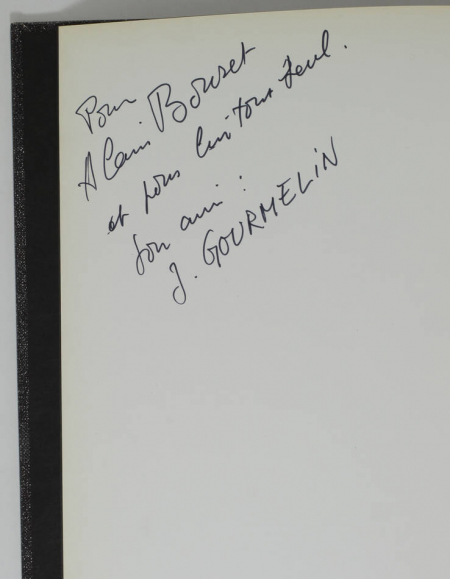 Pour
Alain Bouret
et pour lui tout seul.
son ami :
J. GOURMELIN